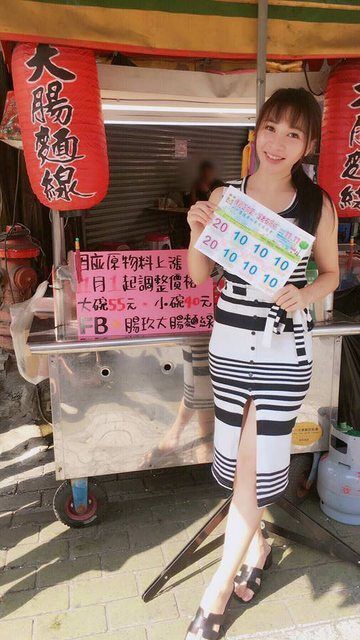 大腸麵線
因應原物料上漲
月1起調整價格
大碗55元、小碗40元
FB 腸玖大腸麵線
20 10 10 10
20 10 10 10